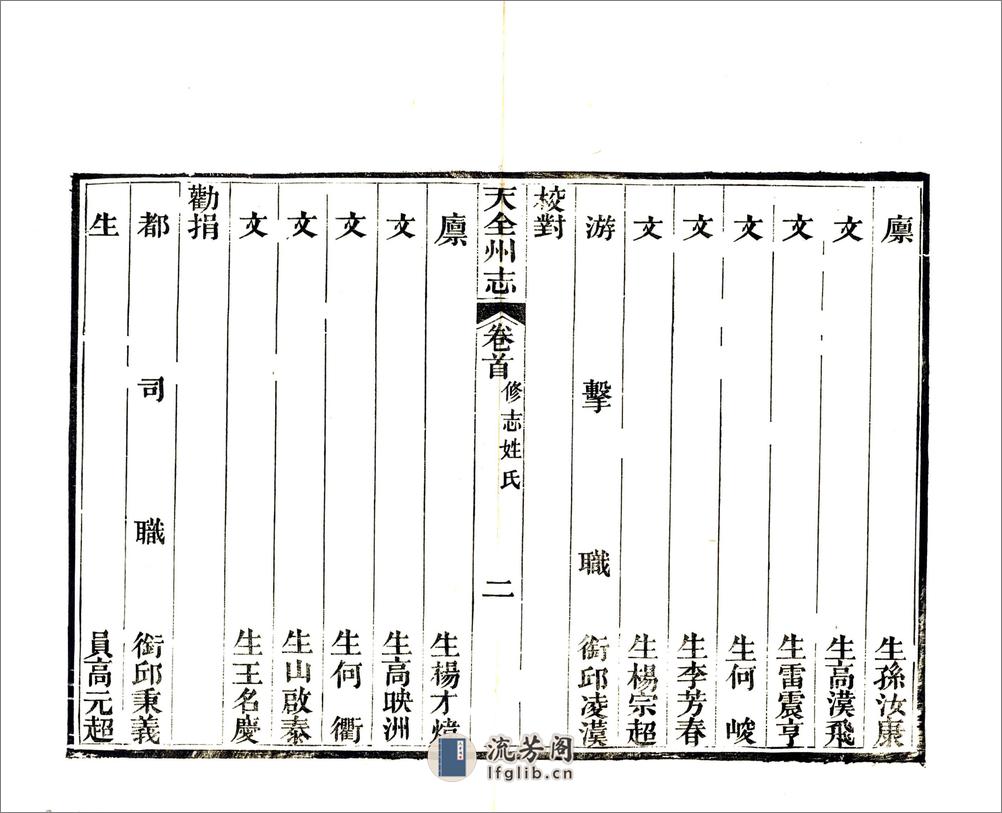 廩生孫汝康
文生高漠飛
文生雷震亨
文生何峻
文生李芳春
文生楊宗超
游擊職銜邱凌漢
校對
天全州志 卷首 修志姓氏 二
廩生楊才煒
文生高映洲
文生何衢
文生山啟泰
文生王名慶
勸捐
都司職銜邱秉義
生員高元超
流芳阁
lfglib.cn